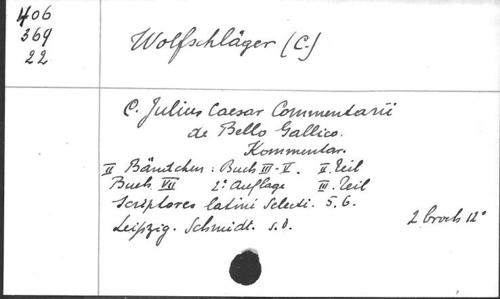 406
369
22
Wolfschläger (C.)
C. Julius Caesar Commentarii
de Bello Gallico.
Kommentar.
II Bändchen : Buch III-V. II. Teil
Buch VII 2e Auflage III. Teil
Scriptores latini Selecti. 5. 6.
Leipzig. Schmidt. s.d. 2 broch 12°